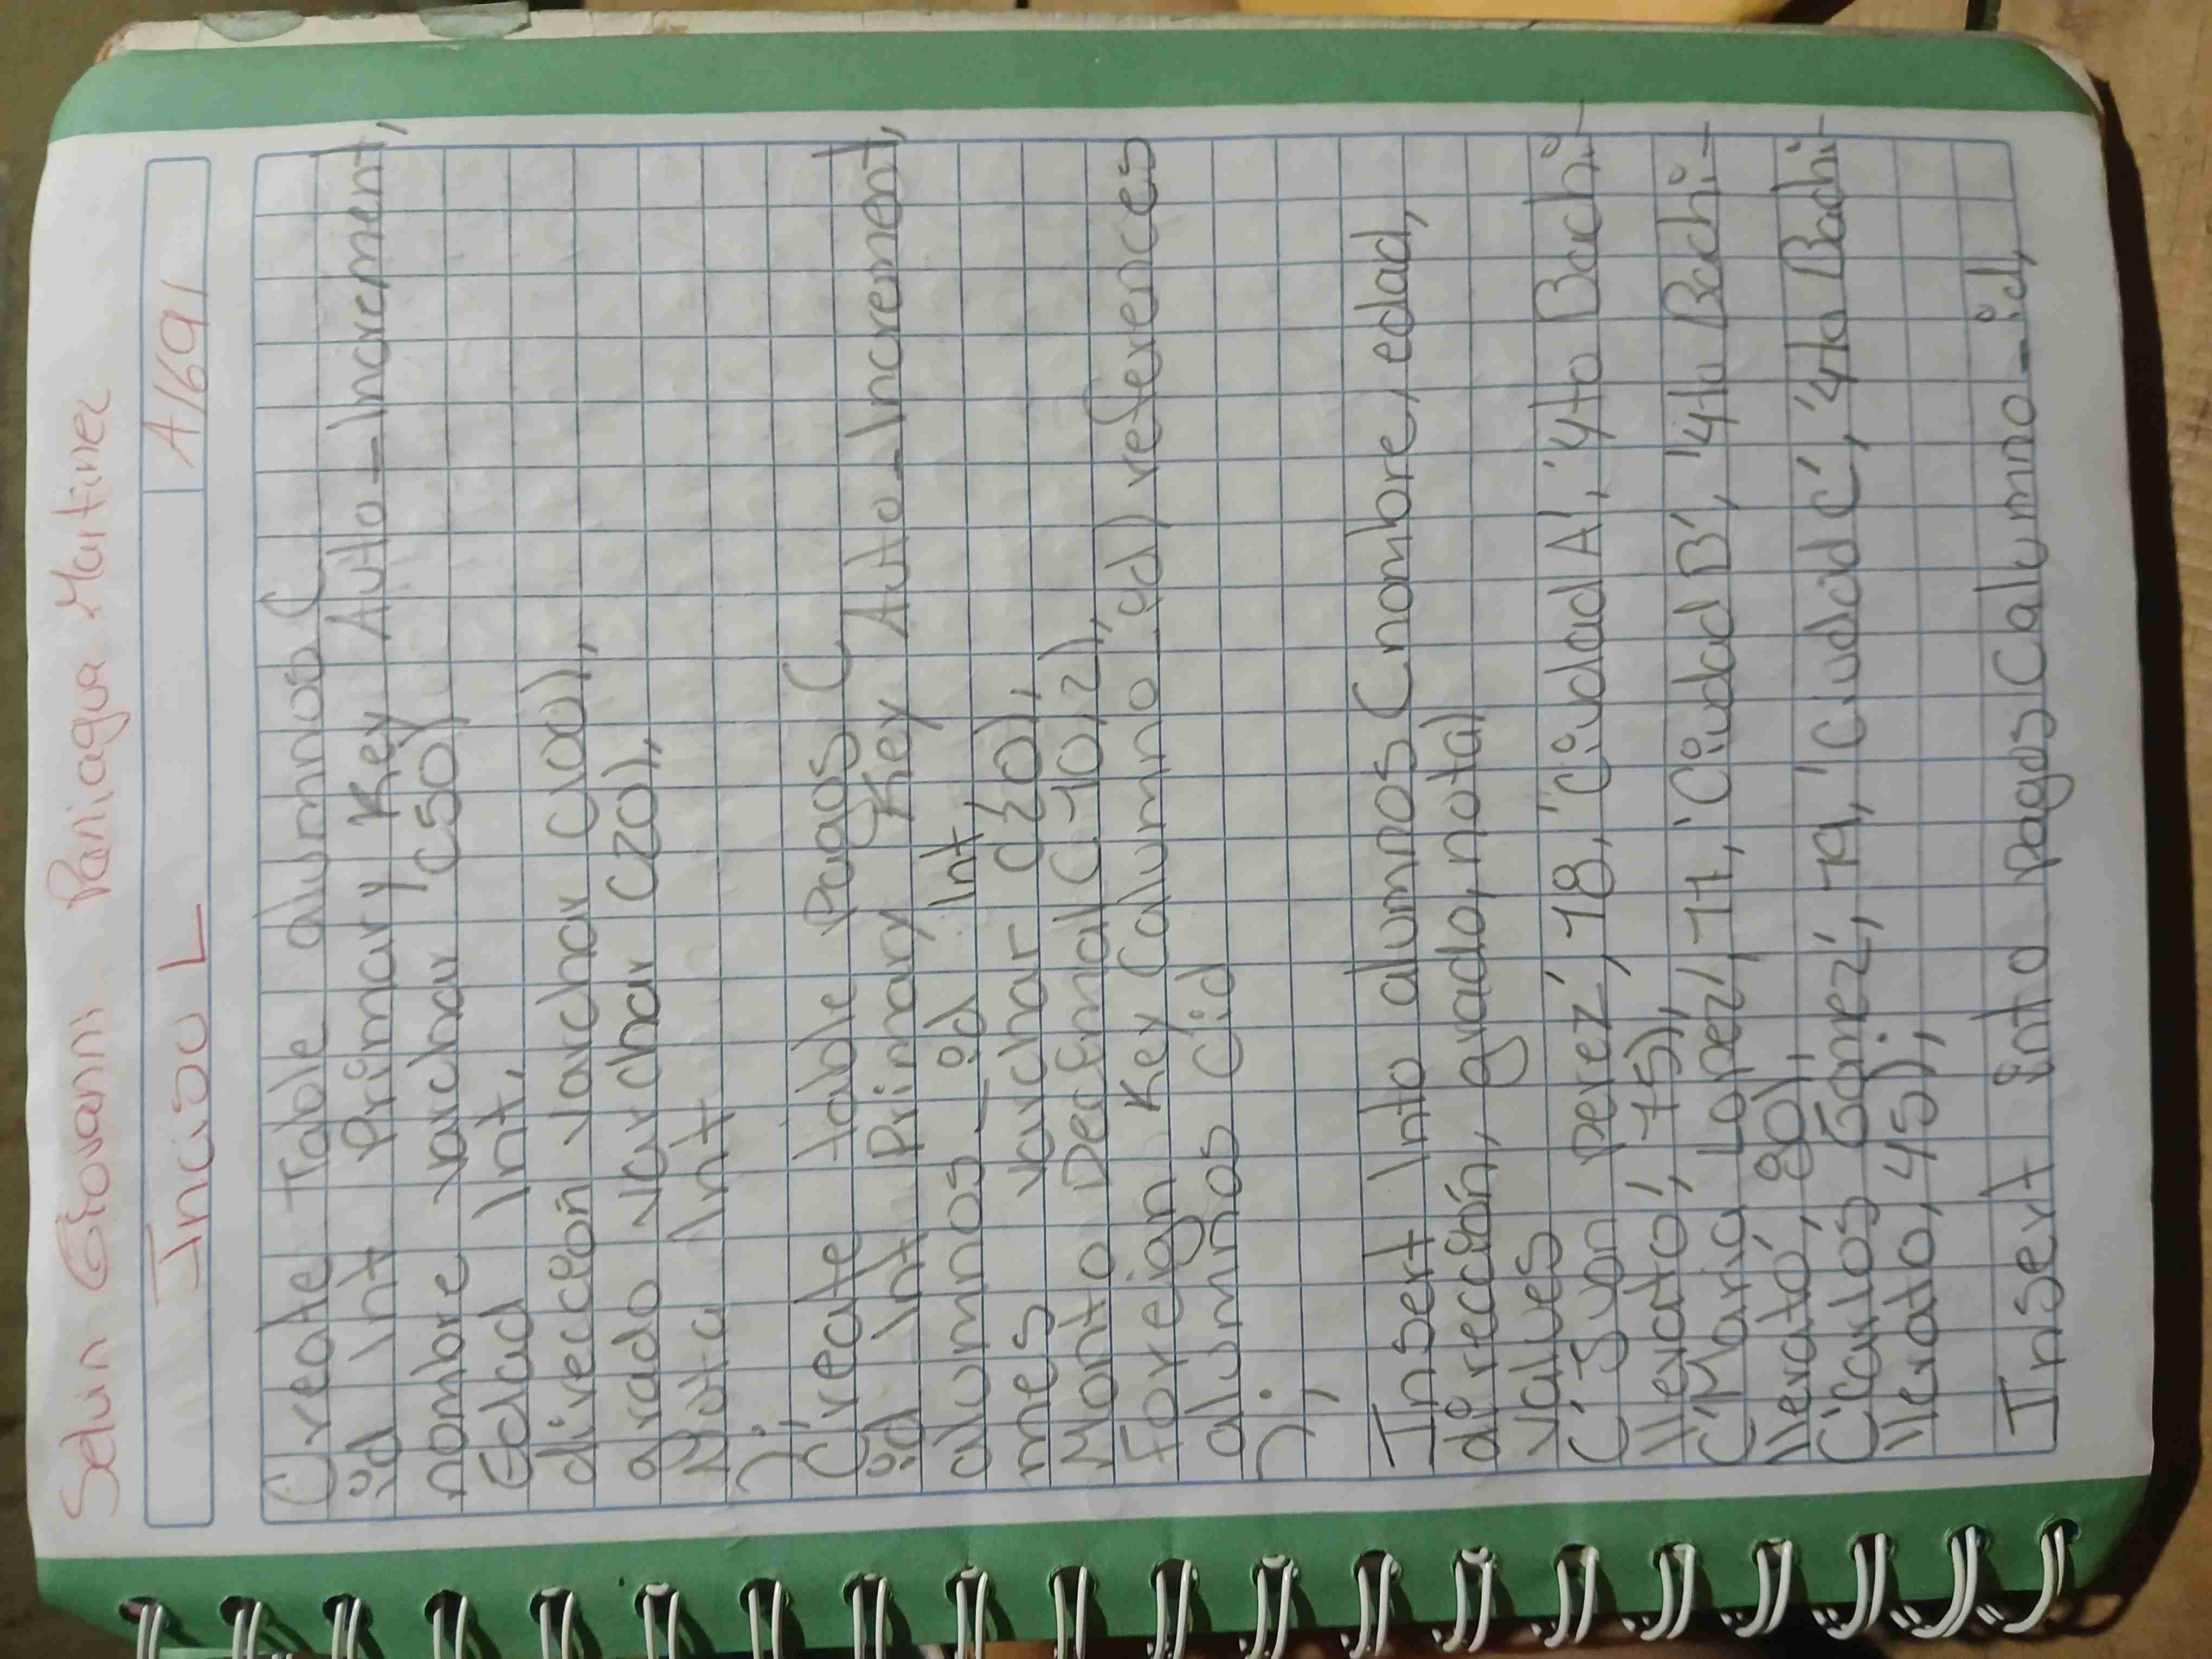 Selvin Giovanni Paniagua Martinez
Inciso L A1691
Create Table alumnos (
id Int Primary Key Auto_Increment,
nombre varchar (50),
Edad Int,
dirección varchar (100),
grado varchar (20),
Nota Int
);
Create table Pagos (
id Int Primary Key Auto_Increment,
alumnos_id Int,
mes varchar (20),
Monto Decimal (10,2),
Foreign Key (alumno_id) references
alumnos (id
);
Insert Into alumnos (nombre, edad,
dirección, grado, nota)
values
('Juan perez', 18, 'Ciudad A', '4to Bachi-
llerato', 75),
('Maria Lopez', 17, 'Ciudad B', '4to Bachi-
llerato', 80),
('Carlos Gomez', 19, 'Ciudad C', '4to Bachi-
llerato, 45);
Insert into pagos (alumno_id,